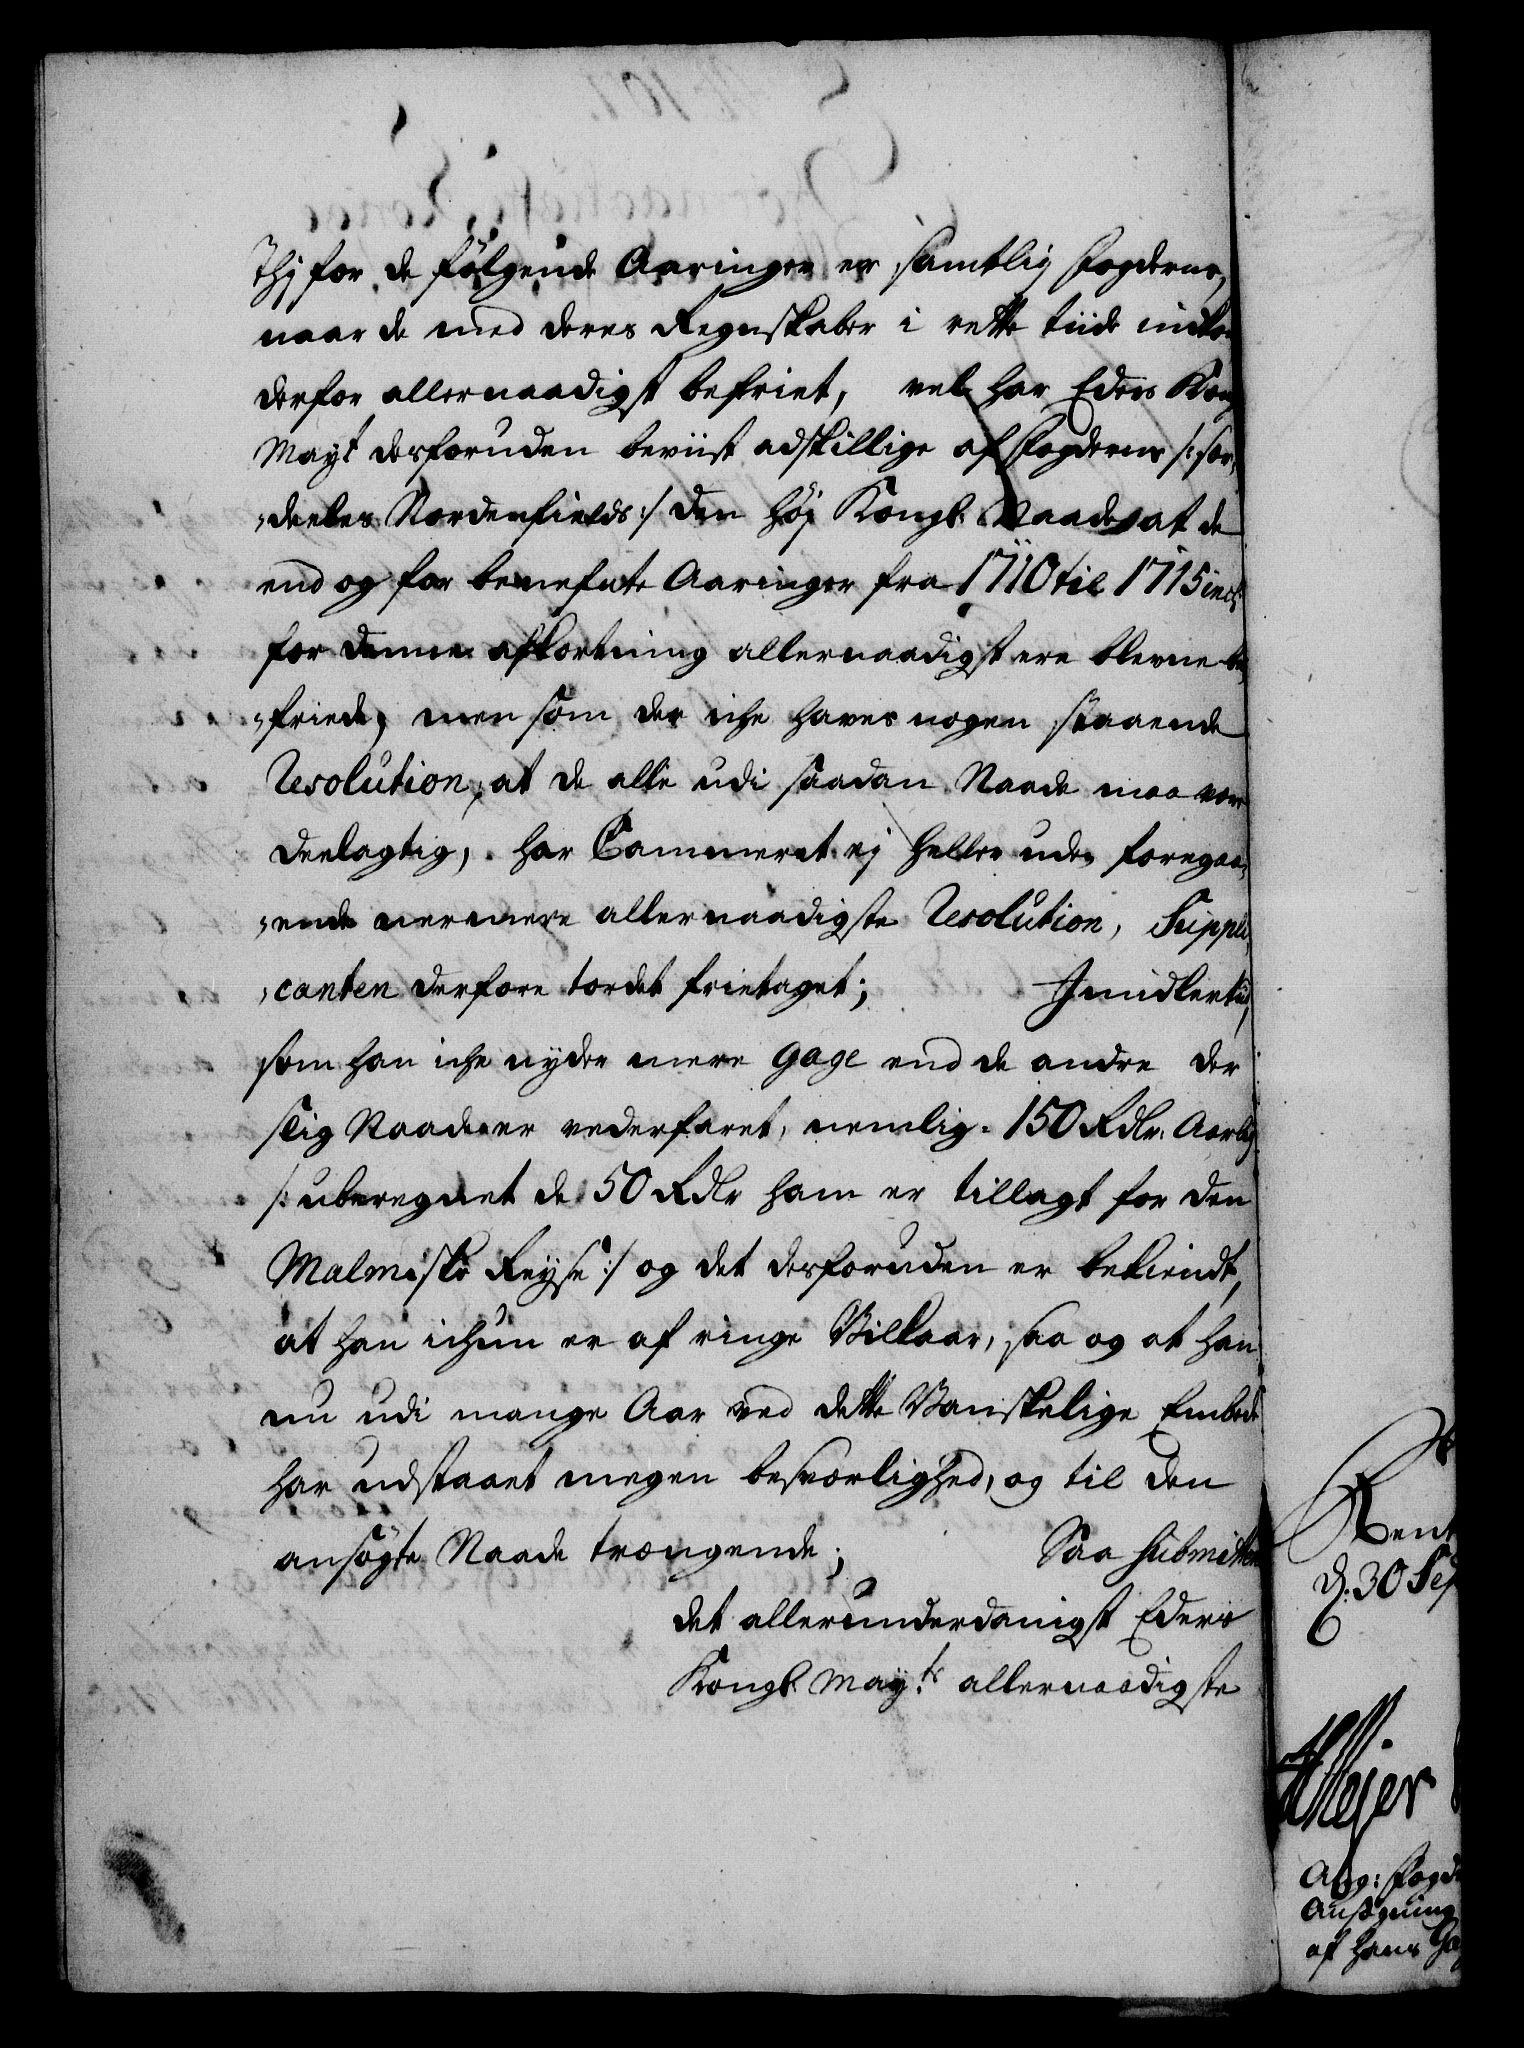 Thj for de fölgende Aaringer er samtlig Fogderne,
naar de med deres Regnskaber i rette tiide indko
derfor allernaadigst befriet, vel har Eders Kong
Mayt desforuden beviist adskillige af Fogderne /: sær,
,deeles Nordenfields :/ den høj Kongl. Naade, at de
end og for benefnte Aaringer fra 1710 til 1715 incl:
for denne afkortning allernaadigst ere blevne be,
,friede, men som der iche haves nogen staaende
Resolution, at de alle udi saadan Naade maa være
deelagtig, har Cammeret ej heller uden foregaa,
,ende nermere allernaadigste Resolution, Suppli,
,canten derfore tordet frietaget; Jmidlertiid,
som han iche nyder mere gage end de andre der
slig Naade er vederfaret, nemlig. 150 Rdlr. Aarlig
/: uberegnet de 50 Rdlr ham er tillagt for den
Malmiske Reyse :/ og det desforuden er bekiendt,
at han ichun er af ringe Vilkaar, saa og at han
nu udi mange Aar ved dette Vanskelige Embede
har udstaaet megen besværlighed, og til den
ansøgte Naade trængende; Saa submitter
det allerunderdanigst Eders
Kongl. Mayts. allernaadigste
Rent
d. 30 Sep
Meyer
Ang: Fogd
Ansøgning
af hans Ga